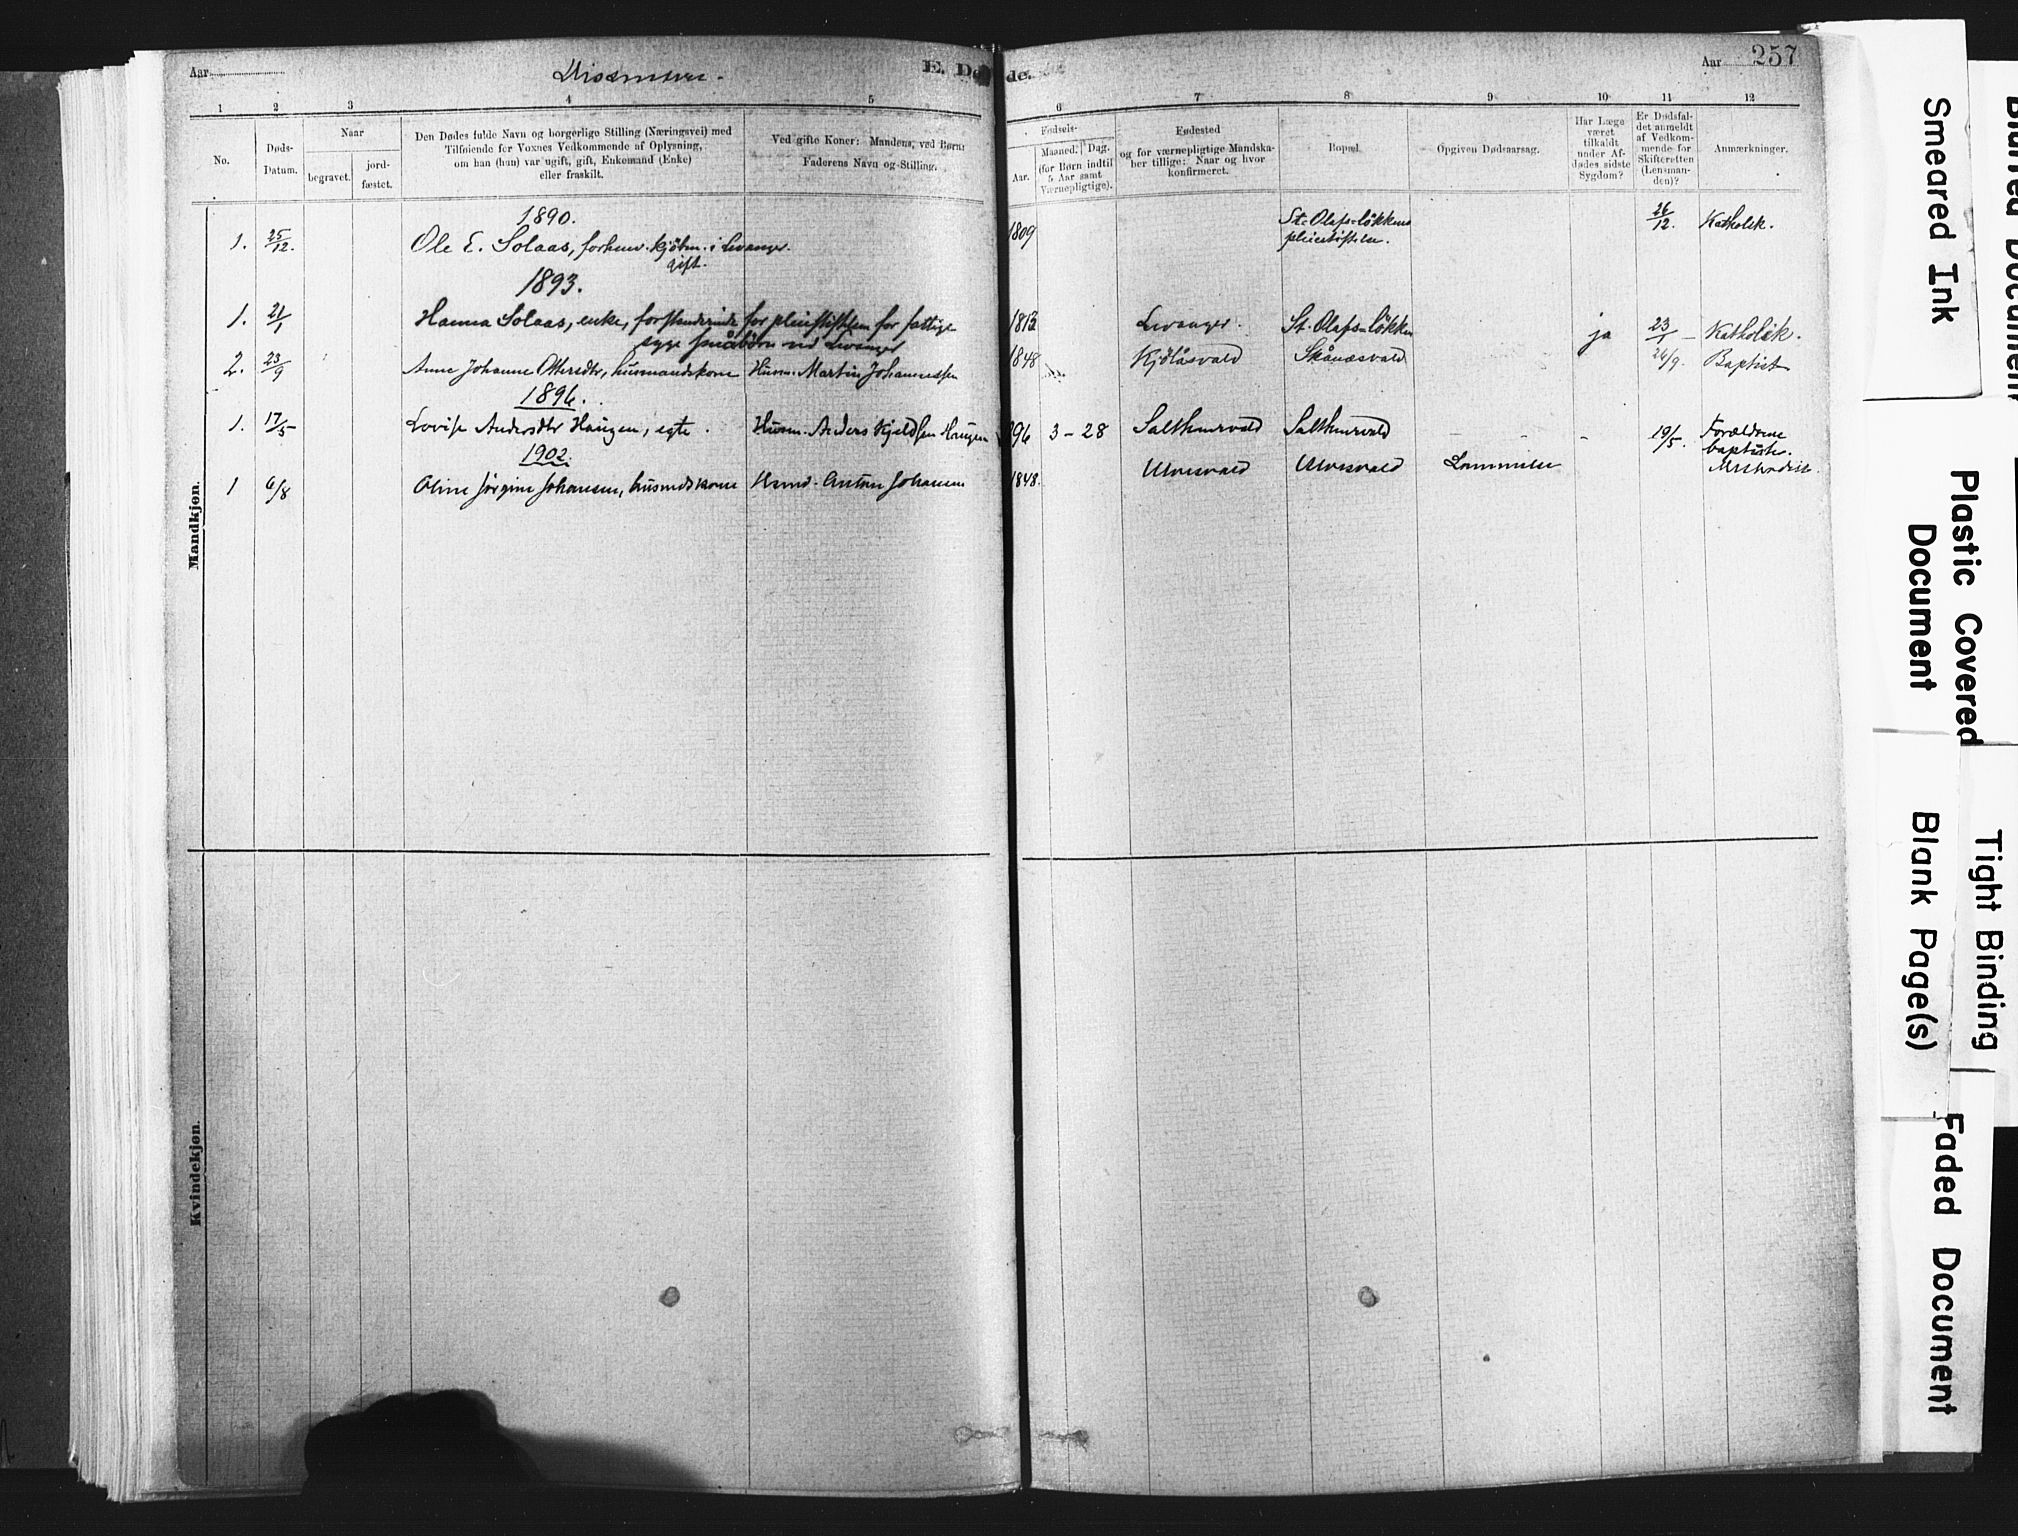 Aar
Dissentere.
E. Døde.
Aar 257
1 2 3 4 5 6 7 8 9 10 11 12
No.
Døds-
Datum.
Naar
begravet.
jord-
fæstet.
Den Dødes fulde Navn og borgerlige Stilling (Næringsvei) med
Tilføiende for Voxnes Vedkommende af Oplysning,
om han (hun) var ugift, gift, Enkemand (Enke)
eller fraskilt.
Ved gifte Koner: Mandens, ved Børn:
Faderens Navn og Stilling.
Fødsels-
Aar.
Maaned. Dag.
(for Børn indtil
5 Aar samt
Værnepligtige).
Fødested
og for værnepligtige Mandska-
ber tillige: Naar og hvor
konfirmeret.
Bopæl.
Opgiven Dødsaarsag.
Har Læge
været
tilkaldt
under Af-
dødes sidste
Sygdom?
Er Dødsfal-
det anmeldt
af Vedkom-
mende for
Skifteretten
(Lensman-
den)?
Anmærkninger.
Mandkjøn.
1890.
1. 25/12. Ole E. Solaas, forhenv. kjøbm. i Levanger. 1809 St. Olafs-løkkens 26/12. Katholik.
gift. pleiestiftelse.
1893.
1. 21/1 Hanna Solaas, enke, forstanderinde for pleiestiftelsen for fattige 1813 Levanger. St. Olafs-løkken ja 23/1 - Katholik.
syge småbørn ved Levanger
2. 23/9 Anne Johanne Ottersdtr, husmandskone Husm. Martin Johannessen 1848 Kjölåsvald Skånæsvald 26/9. Baptist
1896.
1. 17/5 Lovise Andersdtr Haugen, egte. Husm. Anders Kjeldsen Haugen 96 3-28 Salthusvald Salthusvald - - - 19/5. Forældrene
baptister.
1902.
1 6/8 Oline Jørgine Johansen, husmdskone Hsmd. Anton Johansen 1848. Ulvesvald Ulvesvald Methodist.
Kvindekjøn.
Smeared Ink
Plastic Covered
Document
Tight Binding
Blank Page(s)
Faded Document
Blurred Document